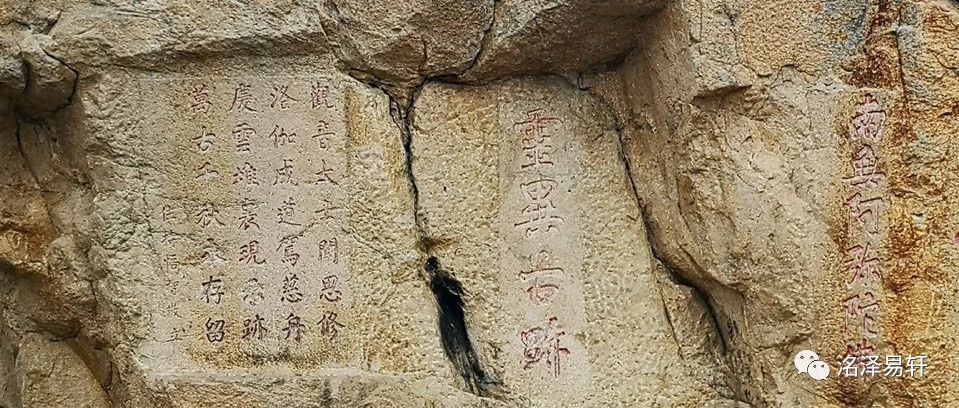 南無阿弥陀
霊異古跡
觀音大士聞思修
洛伽成道駕慈舟
慶雲堆裏現跡
萬古千秋永存留
洺泽易轩